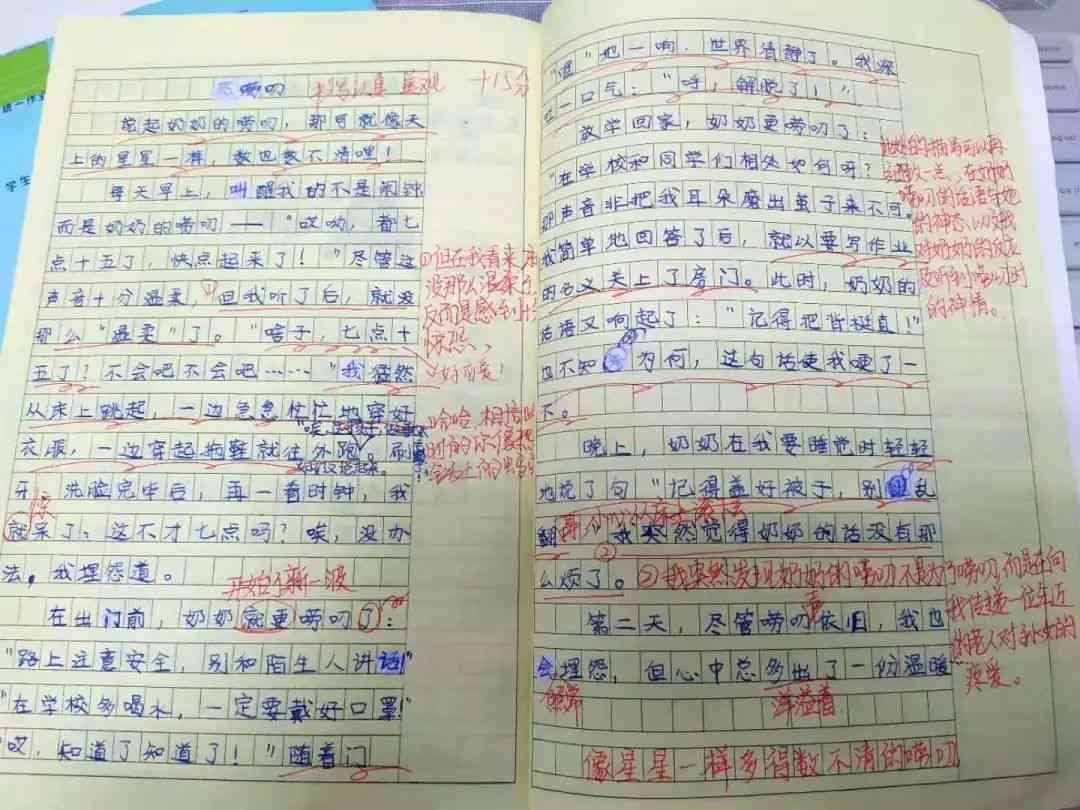 唠叨 书写认真 美观 +15分
说起奶奶的唠叨，那可就像天
上的星星一样，数也数不清哩！
每天早上，叫醒我的不是闹钟
而是奶奶的唠叨——“哎呦，都七
点十五了，快点起来了！”尽管这
声音十分温柔，①但我听了后，就没
那么“温柔”了。“啥子，七点十
五了？不会吧不会吧……”我猛然
从床上跳起，一边急急忙忙地穿好
衣服，一边穿起拖鞋就往外跑。刷
牙 洗脸完毕后，再一看时钟，我
就呆了，这不才七点吗？唉，没办
法，我埋怨道。
开始了新一波
在出门前，奶奶就更唠叨了：
“路上注意安全，别和陌生人讲话”
“在学校多喝水，一定要戴好口罩”
“哎，知道了知道了！”随着门
①但在我看来
没那么温柔
反而是感到十分
惊恐、
好可爱！
哈哈，相信
时的你像
学生
“地一响，世界清静了。我深
一口气：“呼，解脱了！”
放学回家，奶奶更唠叨了：
“在学校和同学们相处如何呀？”
那声音非把我耳朵磨出茧子来不可。
我简单地回答了后，就以要写作业
的名义关上了房门。此时，奶奶的
话语又响起了：“记得把背挺直！”
也不知为何，这句话使我哽了一
下。
晚上，奶奶在我要睡觉时轻轻
地说了句“记得盖好被子，别乱
翻
②我突然觉得奶奶的话没有那
么烦了。②我突然发现奶奶的唠叨不是为了唠叨，而是在向
我传递一位年近
的老人对孙女的
疼爱。
第二天，尽管唠叨依旧，我也
会埋怨，但心中总多出了一份温暖
洋溢着
像星星一样多得数不清的唠叨
此处的描写可以再
一点，在奶奶
唠叨的话语与她
的神态，以及我
对奶奶的反应
及听到唠叨时
的神情。